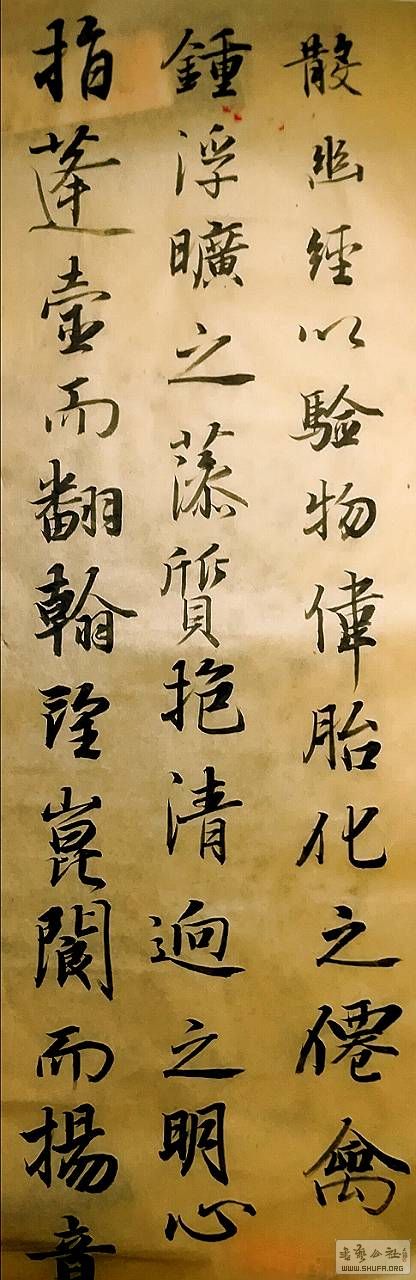 散幽經以驗物偉胎化之僊禽
鍾浮曠之藻質抱清迥之明心
指蓬壺而翻翰望崑閬而揚音
WWW.SHUFA.ORG